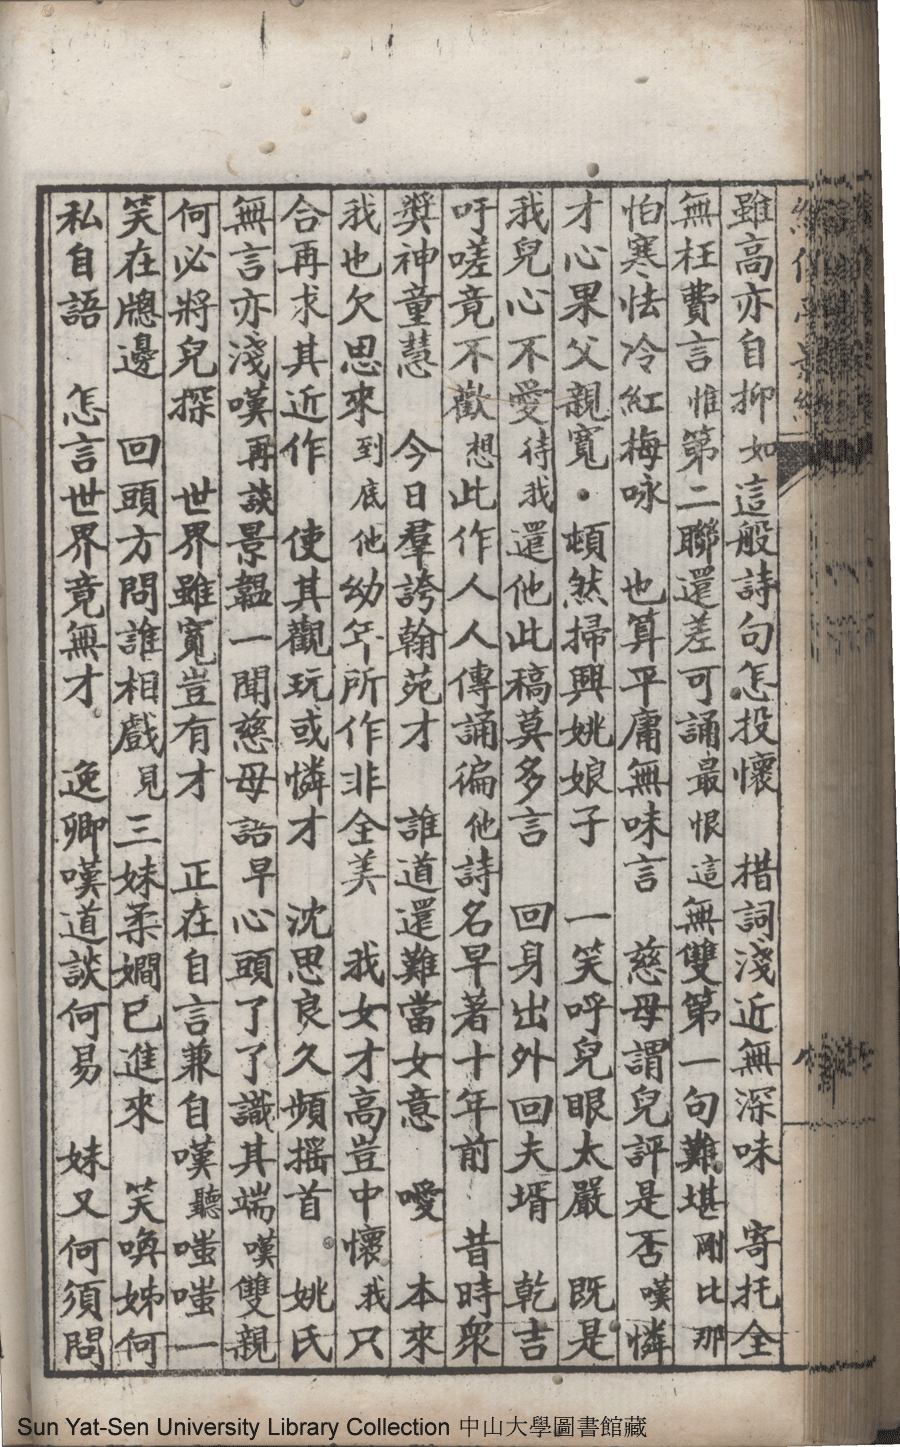 雖高亦自抑如這般詩句怎投懷　措詞淺近無深味　寄托全
無枉費言惟第二聯還差可誦最恨這無雙第一句難堪剛比那
怕寒怯冷紅梅咏　也算平庸無味言　慈母謂兒評是否嘆憐
才心果父親寬・頓然掃興姚娘子　一笑呼兒眼太嚴　既是
我兒心不愛待我還他此稿莫多言　回身出外回夫壻　乾吉
吁嗟竟不歡想此作人人傳誦徧他詩名早著十年前　昔時衆
奬神童慧　今日羣誇翰苑才　誰道還難當女意　噯　本來
我也欠思來到底他幼年所作非全美　我女才高豈中懷我只
合再求其近作　使其觀玩或憐才　沈思良久頻摇首　姚氏
無言亦淺嘆再談景韞一聞慈母語早心頭了了識其端嘆雙親
何必將兒探　世界雖寬豈有才　正在自言兼自嘆聽嗤嗤一
笑在牕邊　回頭方問誰相戲見三妹柔嫺已進來　笑喚姊何
私自語　怎言世界竟無才　逸卿嘆道談何易　妹又何須問
Sun Yat-Sen University Library Collection 中山大學圖書館藏